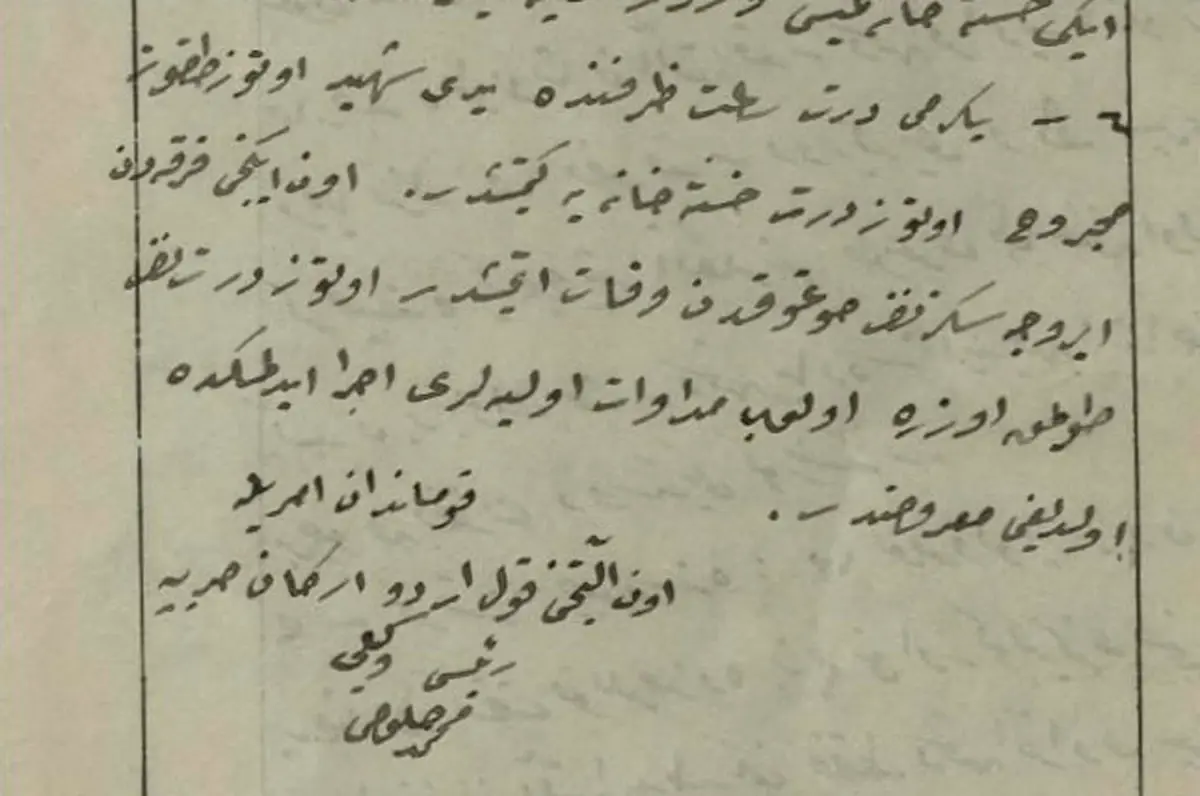 ایکی خسته خانه
٤ - یكرمی درت ساعت ظرفنده یدی شهید اوتوز طقوز
مجروح اوتوز درت خسته خانه یه كیتمشدر. اون ایكنجی فرقه دن
آیروجه سكز نفر صوغوقدن وفات ایتمشدر اوتوز درت نفر
طوكمق اوزره اولوب مداوات اولیه لری اجرا ایدلمكده
اولدیغی معروضدر.
قوماندان امریله
اون آلتنجی قول اردو اركان حربیه
رئیس وكیلی
محمد خلوصی